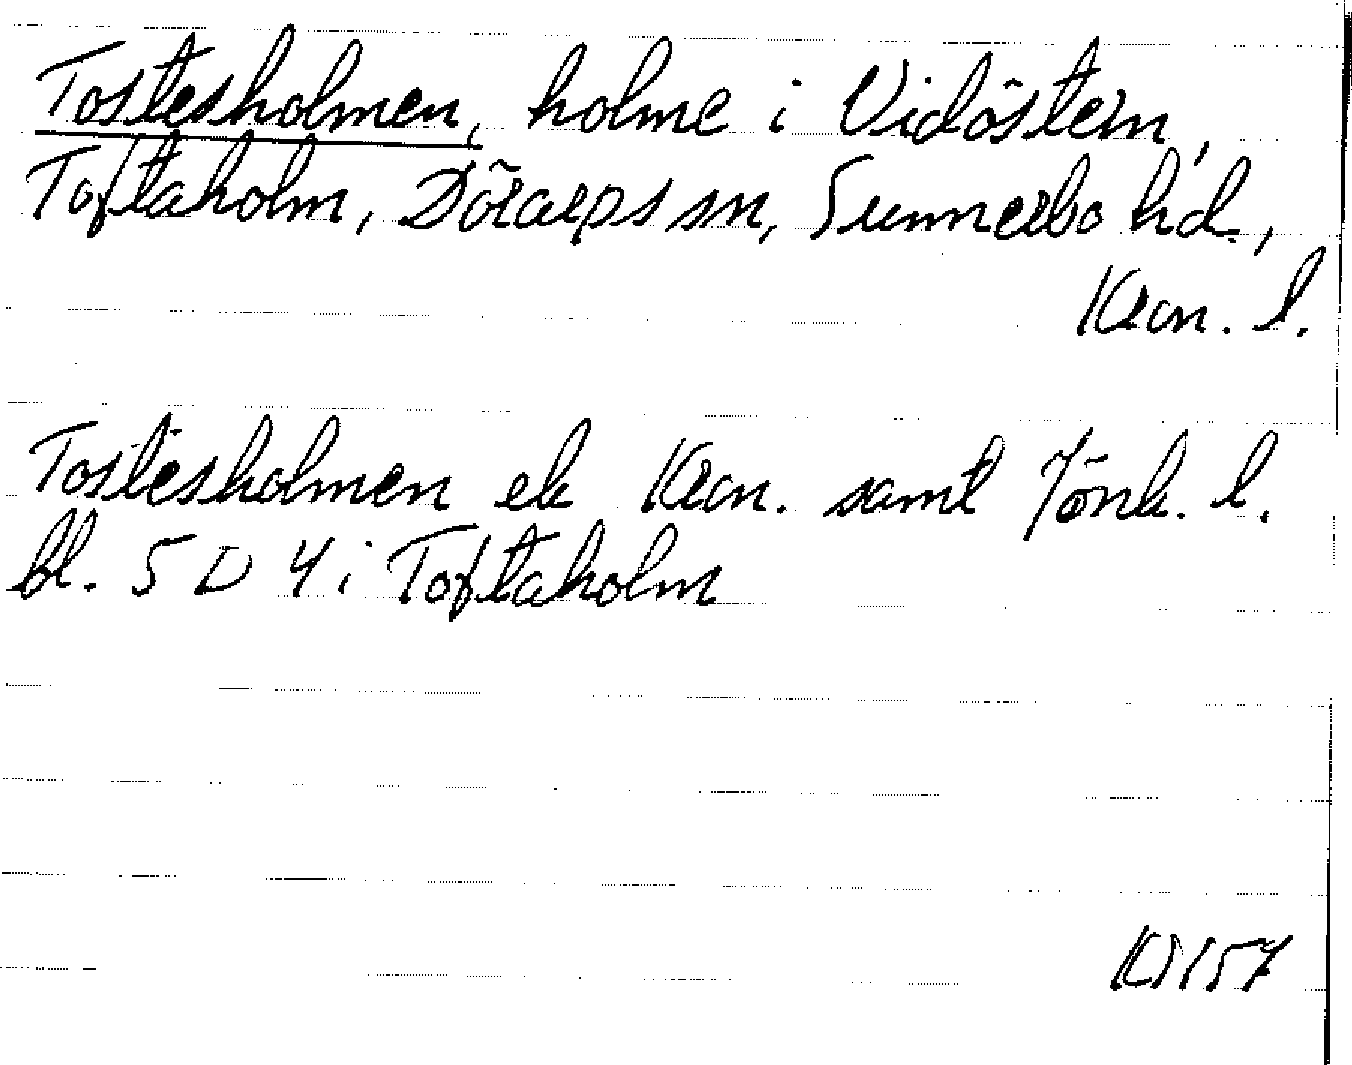 Tostesholmen, holme i Vidöstern,
Toftaholm, Dörarps sn, Sunnerbo hd.,
Kron. l.
Tostesholmen ek Kron. samt Jönk. l.
bl. 5 D 4 i Toftaholm